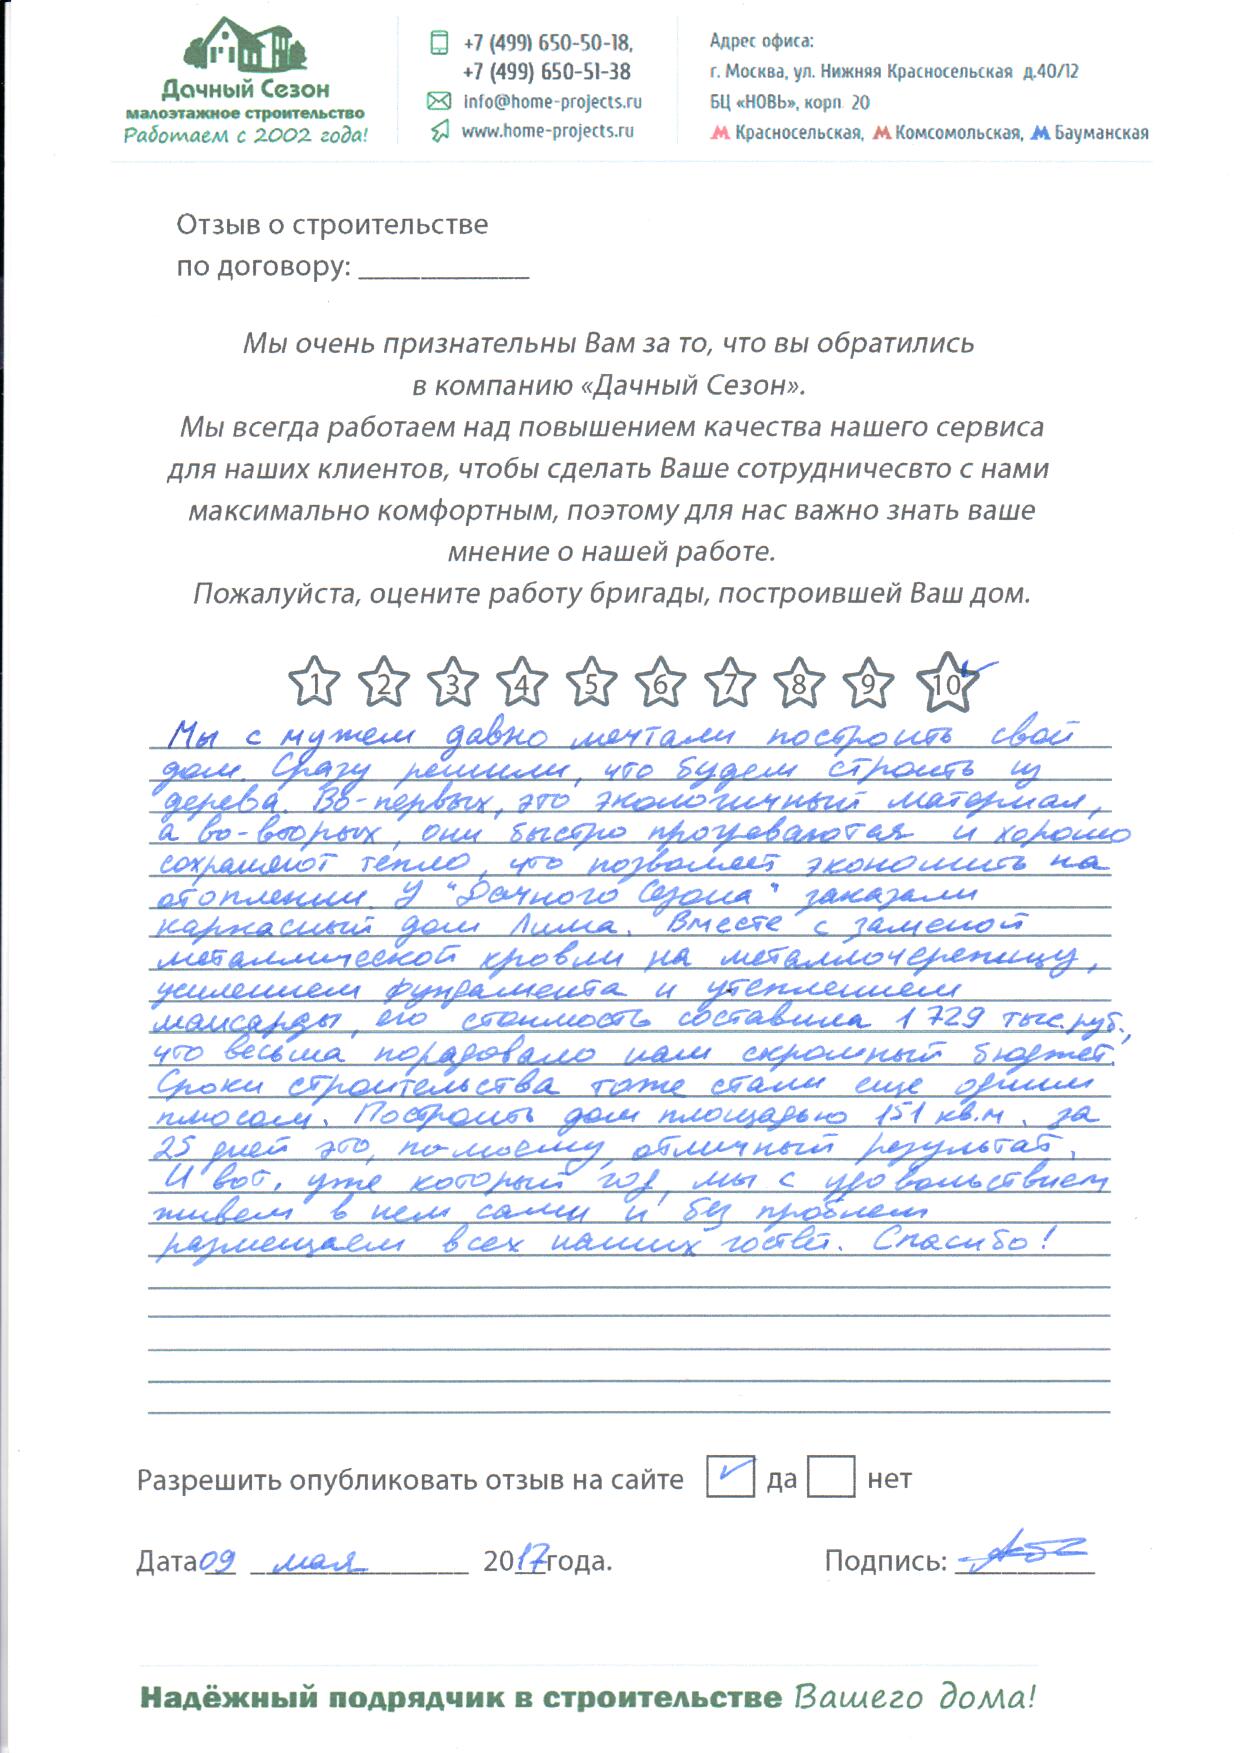 Дачный Сезон
малоэтажное строительство
Работаем с 2002 года!
+7 (499) 650-50-18,
+7 (499) 650-51-38
info@home-projects.ru
www.home-projects.ru
Адрес офиса:
г. Москва, ул. Нижняя Красносельская д.40/12
БЦ «НОВЬ», корп. 20
Красносельская, Комсомольская, Бауманская
Отзыв о строительстве
по договору:
Мы очень признательны Вам за то, что вы обратились
в компанию «Дачный Сезон».
Мы всегда работаем над повышением качества нашего сервиса
для наших клиентов, чтобы сделать Ваше сотрудничесвто с нами
максимально комфортным, поэтому для нас важно знать ваше
мнение о нашей работе.
Пожалуйста, оцените работу бригады, построившей Ваш дом.
1 2 3 4 5 6 7 8 9 10
Мы с мужем давно мечтали построить свой
дом. Сразу решили, что будем строить из
дерева. Во-первых, это экологичный материал,
а во-вторых, они быстро прогреваются и хорошо
сохраняют тепло, что позволяет экономить на
отоплении. У "Дачного Сезона" заказали
каркасный дом Лима. Вместе с заменой
металлической кровли на металлочерепицу,
усилением фундамента и утеплением
мансарды, его стоимость составила 1 729 тыс.руб.,
что весьма порадовало нам скромный бюджет.
Сроки строительства тоже стали еще одним
плюсом. Построить дом площадью 151 кв.м. за
25 дней это, по-моему, отличный результат.
И вот, уже который год, мы с удовольствием
живем в нем сами и без проблем
размещаем всех наших гостей. Спасибо!
Разрешить опубликовать отзыв на сайте да нет
Дата 09 мая 2017 года. Подпись:
Надёжный подрядчик в строительстве Вашего дома!